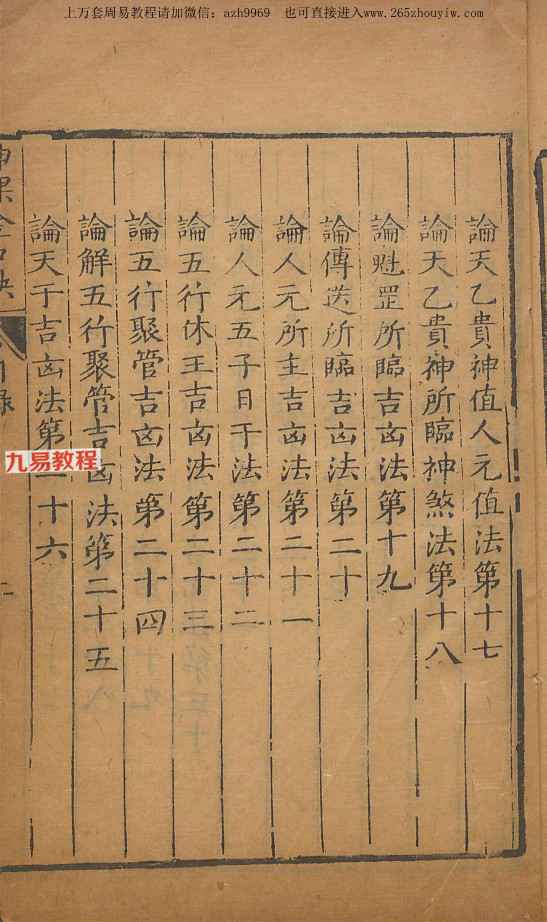 上万套周易教程请加微信：azh9969　也可直接进入www.265zhouyiw.com
論天乙貴神值人元值法第十七
論天乙貴神所臨神煞法第十八
論魁罡所臨吉凶法第十九
論傳送所臨吉凶法第二十
論人元所主吉凶法第二十一
論人元五子日干法第二十二
論五行休王吉凶法第二十三
論五行聚管吉凶法第二十四
論解五行聚管吉凶法第二十五
論天干吉凶法第二十六
九易教程
神課金口訣
目錄